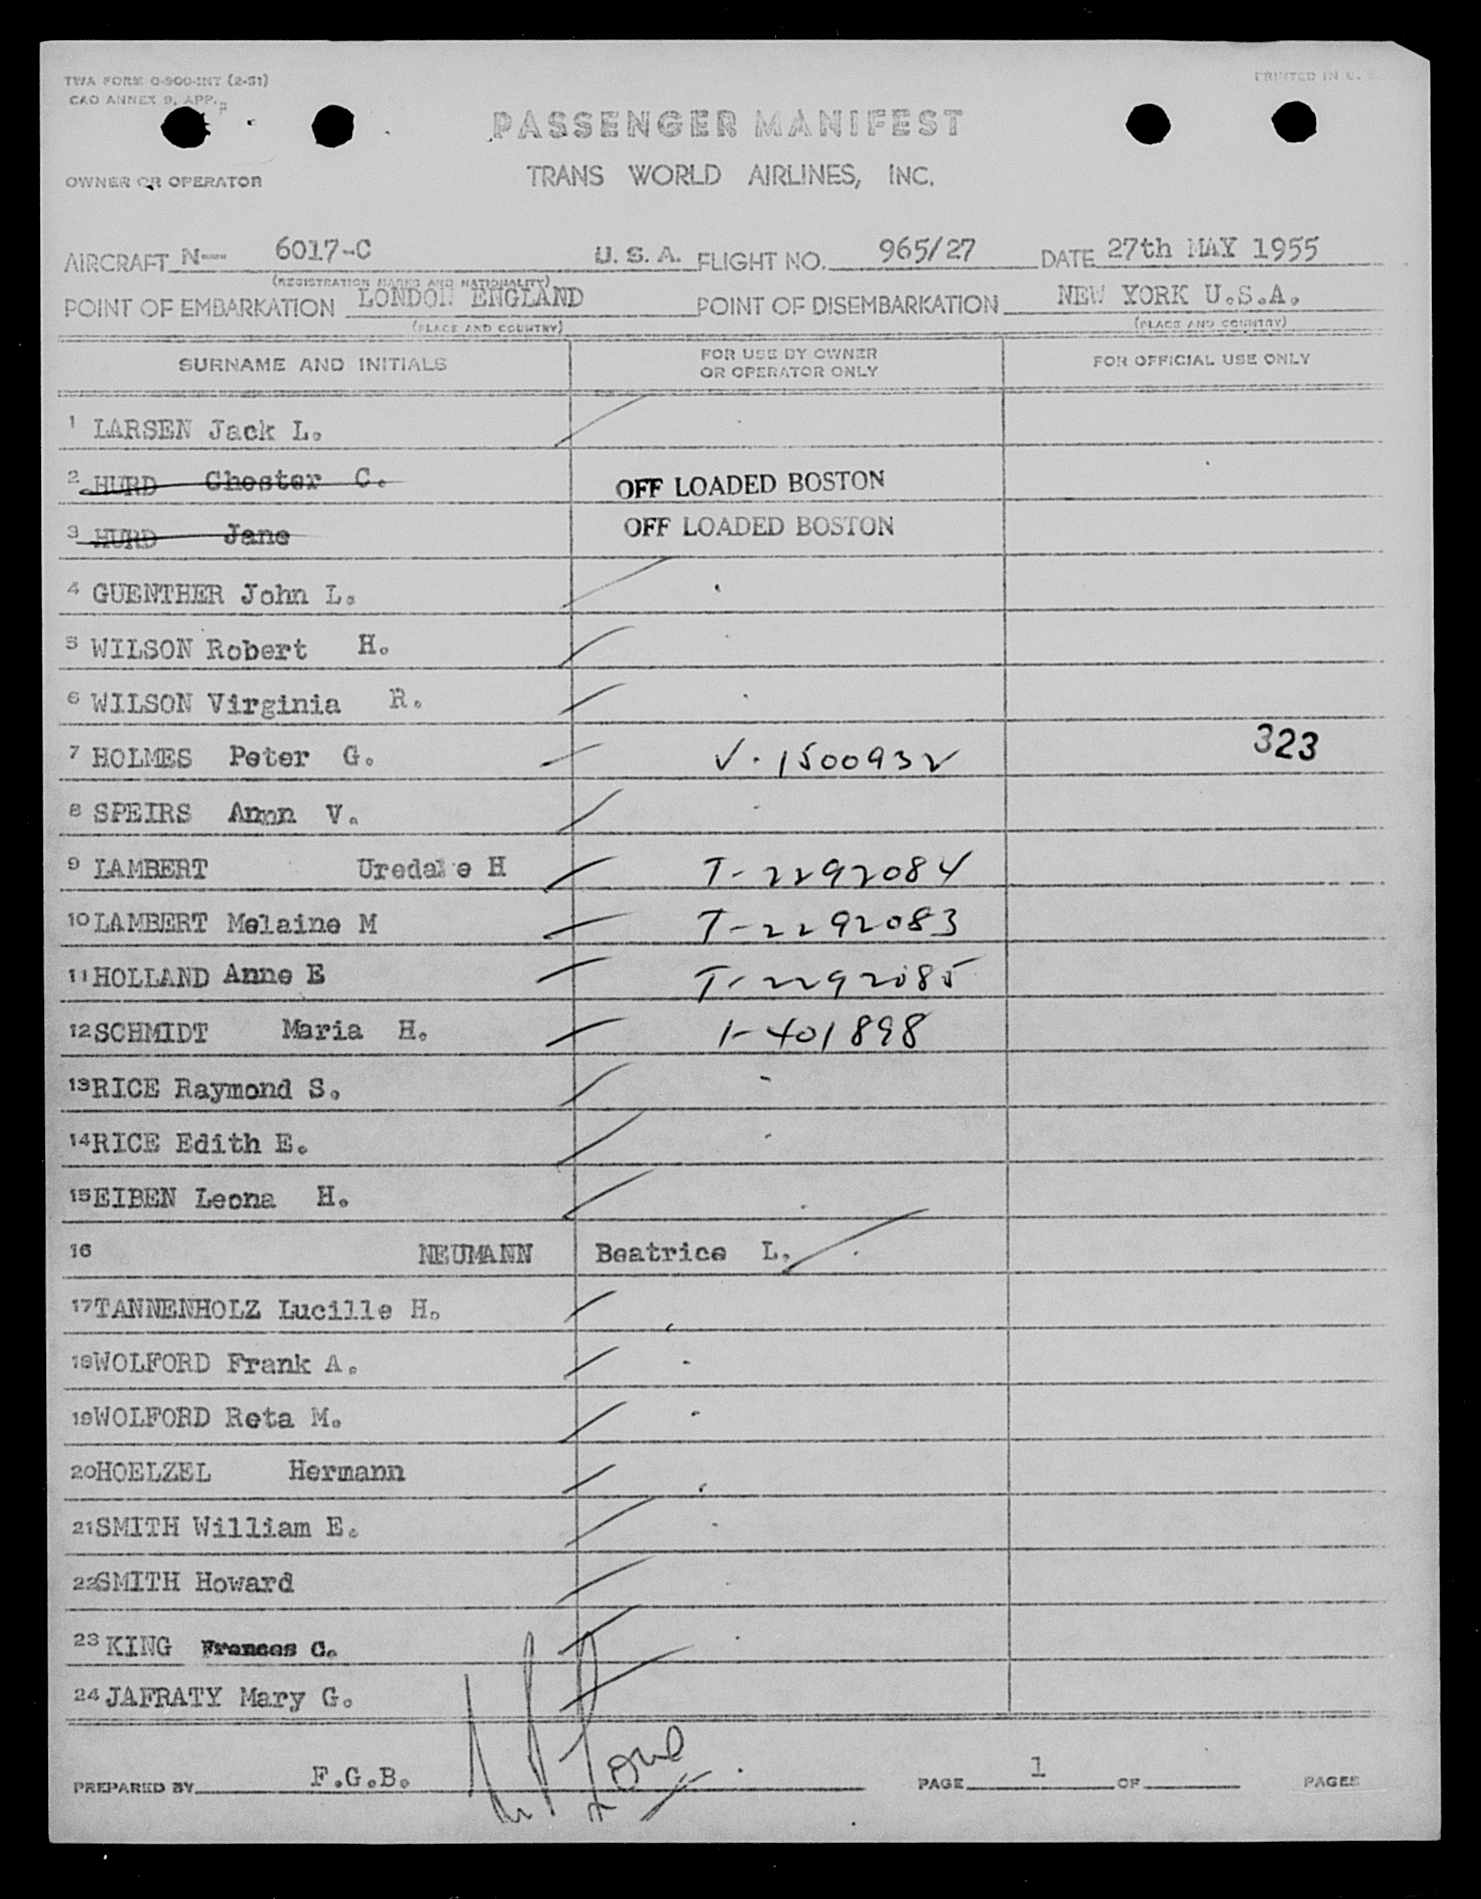 TWA FORM O-900-INT (2-51)
PRINTED IN U. S.
CAO ANNEX 9, APP.
PASSENGER MANIFEST
OWNER OR OPERATOR
TRANS WORLD AIRLINES, INC.
AIRCRAFT N--- 6017-C U. S. A. FLIGHT NO. 965/27 DATE 27th MAY 1955
(REGISTRATION MARKS AND NATIONALITY)
POINT OF EMBARKATION LONDON ENGLAND POINT OF DISEMBARKATION NEW YORK U.S.A.
(PLACE AND COUNTRY) (PLACE AND COUNTRY)
SURNAME AND INITIALS FOR USE BY OWNER OR OPERATOR ONLY FOR OFFICIAL USE ONLY
1 LARSEN Jack L.
2 HURD Chester C. OFF LOADED BOSTON
3 HURD Jane OFF LOADED BOSTON
4 GUENTHER John L.
5 WILSON Robert H.
6 WILSON Virginia R.
7 HOLMES Peter G. V-1500932 323
8 SPEIRS V.
9 LAMBERT H T-2292084
10 LAMBERT Melaine M T-2292083
11 HOLLAND Anne E T-2292085
12 SCHMIDT Maria H. I-401898
13 RICE Raymond S.
14 RICE Edith E.
15 EIBEN Leona H.
16 NEUMANN Beatrice L.
17 TANNENHOLZ Lucille H.
18 WOLFORD Frank A.
19 WOLFORD Reta M.
20 HOELZEL Hermann
21 SMITH William E.
22 SMITH Howard
23 KING Frances C.
24 JAFRATY Mary G.
PREPARED BY F.G.B. PAGE 1 OF PAGES